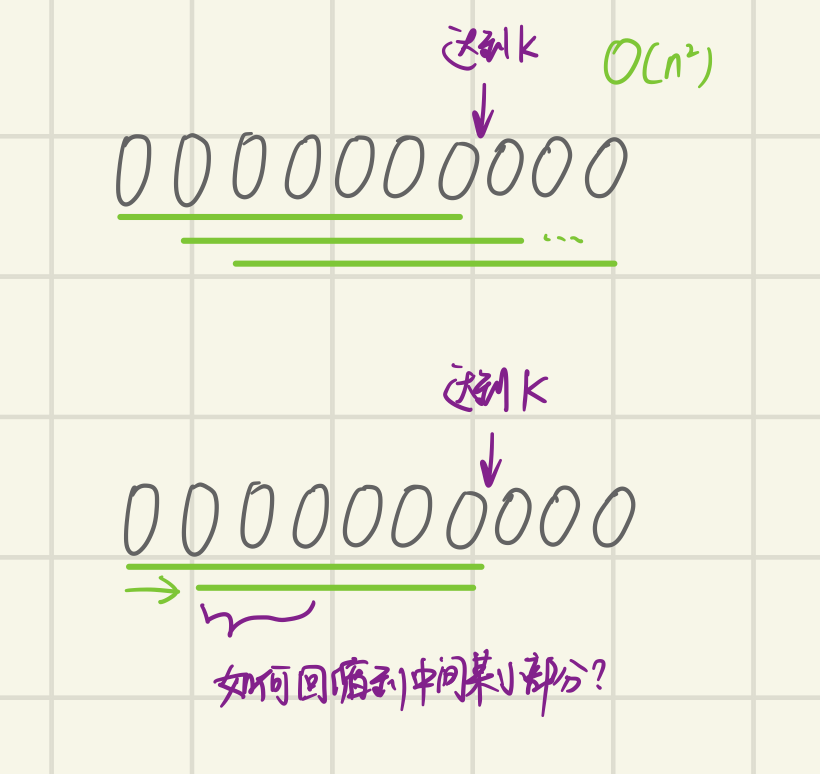 达到K
O(n²)
0000000000
达到K
0000000000
如何回溯到中间某小部分?